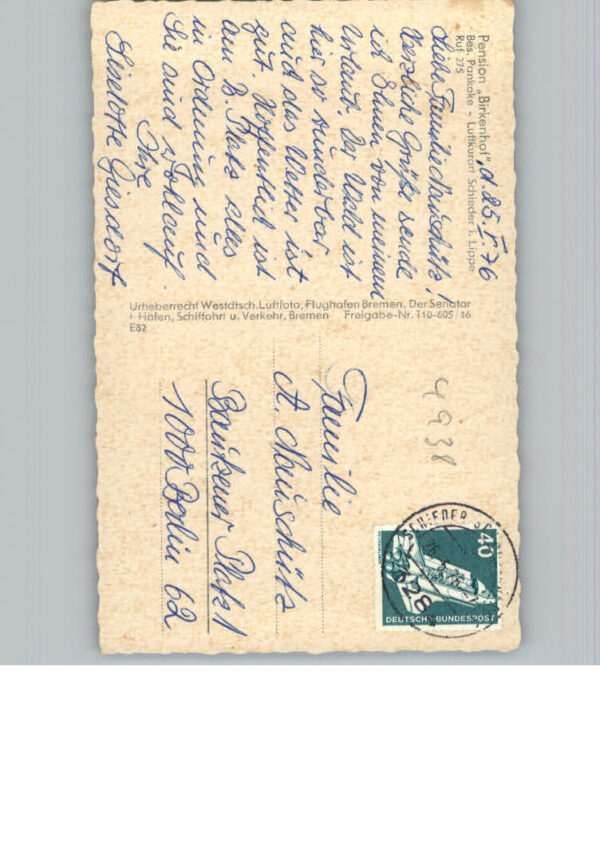 Pension „Birkenhof"
Bes. Pankoke - Luftkurort Schieder i. Lippe
Ruf 275
d. 25. V. 76
Liebe Familie Neuschütz!
Herzliche Grüße sende
ich Ihnen von meinem
Urlaub. Der Wald ist
hier so wunderbar
und das Wetter ist
gut. Hoffentlich ist
am B. Platz alles
in Ordnung und
Sie sind wohlauf.
Ihre
Liselotte
Urheberrecht Westdtsch. Luftfoto, Flughafen Bremen. Der Senator
f. Häfen, Schiffahrt u. Verkehr, Bremen Freigabe-Nr. 110-605/16
E82
4938
40
DEUTSCHE BUNDESPOST
SCHIEDER
Familie
A. Neuschütz
Bautzener Platz 1
1000 Berlin 62